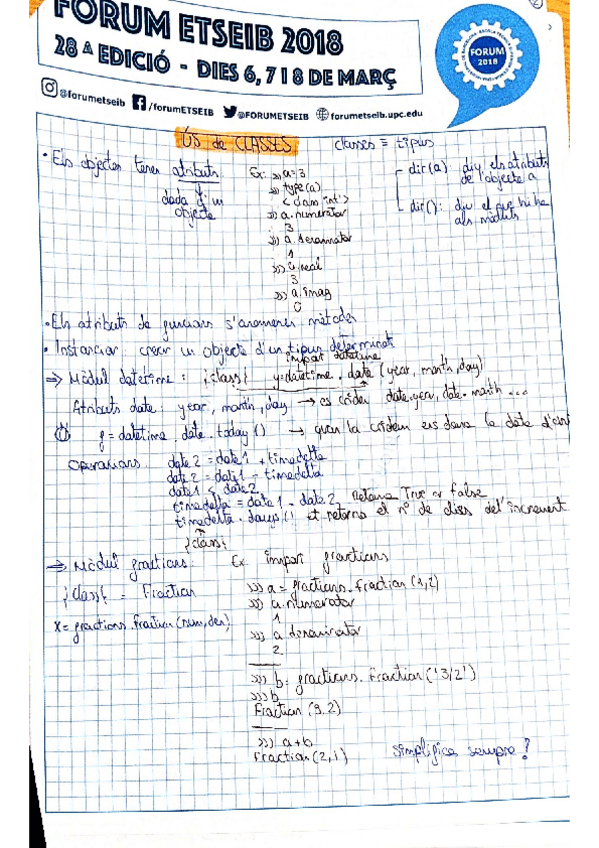 FÒRUM ETSEIB 2018
28ª EDICIÓ - DIES 6, 7 I 8 DE MARÇ
FORUM 2018
@forumetseib /forumETSEIB @FORUMETSEIB forumetseib.upc.edu
ÚS de CLASSES classes ≡ tipus
• Els objectes tenen atributs
dada d'un objecte
Ex: >>> a=3
>>> type(a)
<class 'int'>
>>> a.numerator
3
>>> a.denominator
1
>>> a.real
3
>>> a.imag
0
- dir(a): diu els atributs de l'objecte a
- dir(): diu el que hi ha als mòduls
• Els atributs de funcions s'anomenen mètodes
• Instanciar crear un objecte d'un tipus determinat
import datetime
⇒ Mòdul datetime: {class} y=datetime.date(year, month, day)
Atributs date: year, month, day → es criden date.year, date.month ...
f=datetime.date.today() → quan la cridem ens dona la data d'avui
Operacions: date2 = date1 + timedelta
date2 = date1 - timedelta
date1 < date2
timedelta = date1 - date2 Retorna True or false
timedelta.days() et retorna el nº de dies de l'increment
{class}
⇒ Mòdul fractions: Ex import fractions
{class} = Fraction
x = fractions.fraction(num,den)
>>> a = fractions.fraction(1,2)
>>> a.numerator
1
>>> a.denominator
2
>>> b = fractions.Fraction('3/2')
>>> b
Fraction(3,2)
>>> a+b
Fraction(2,1) Simplifica sempre!